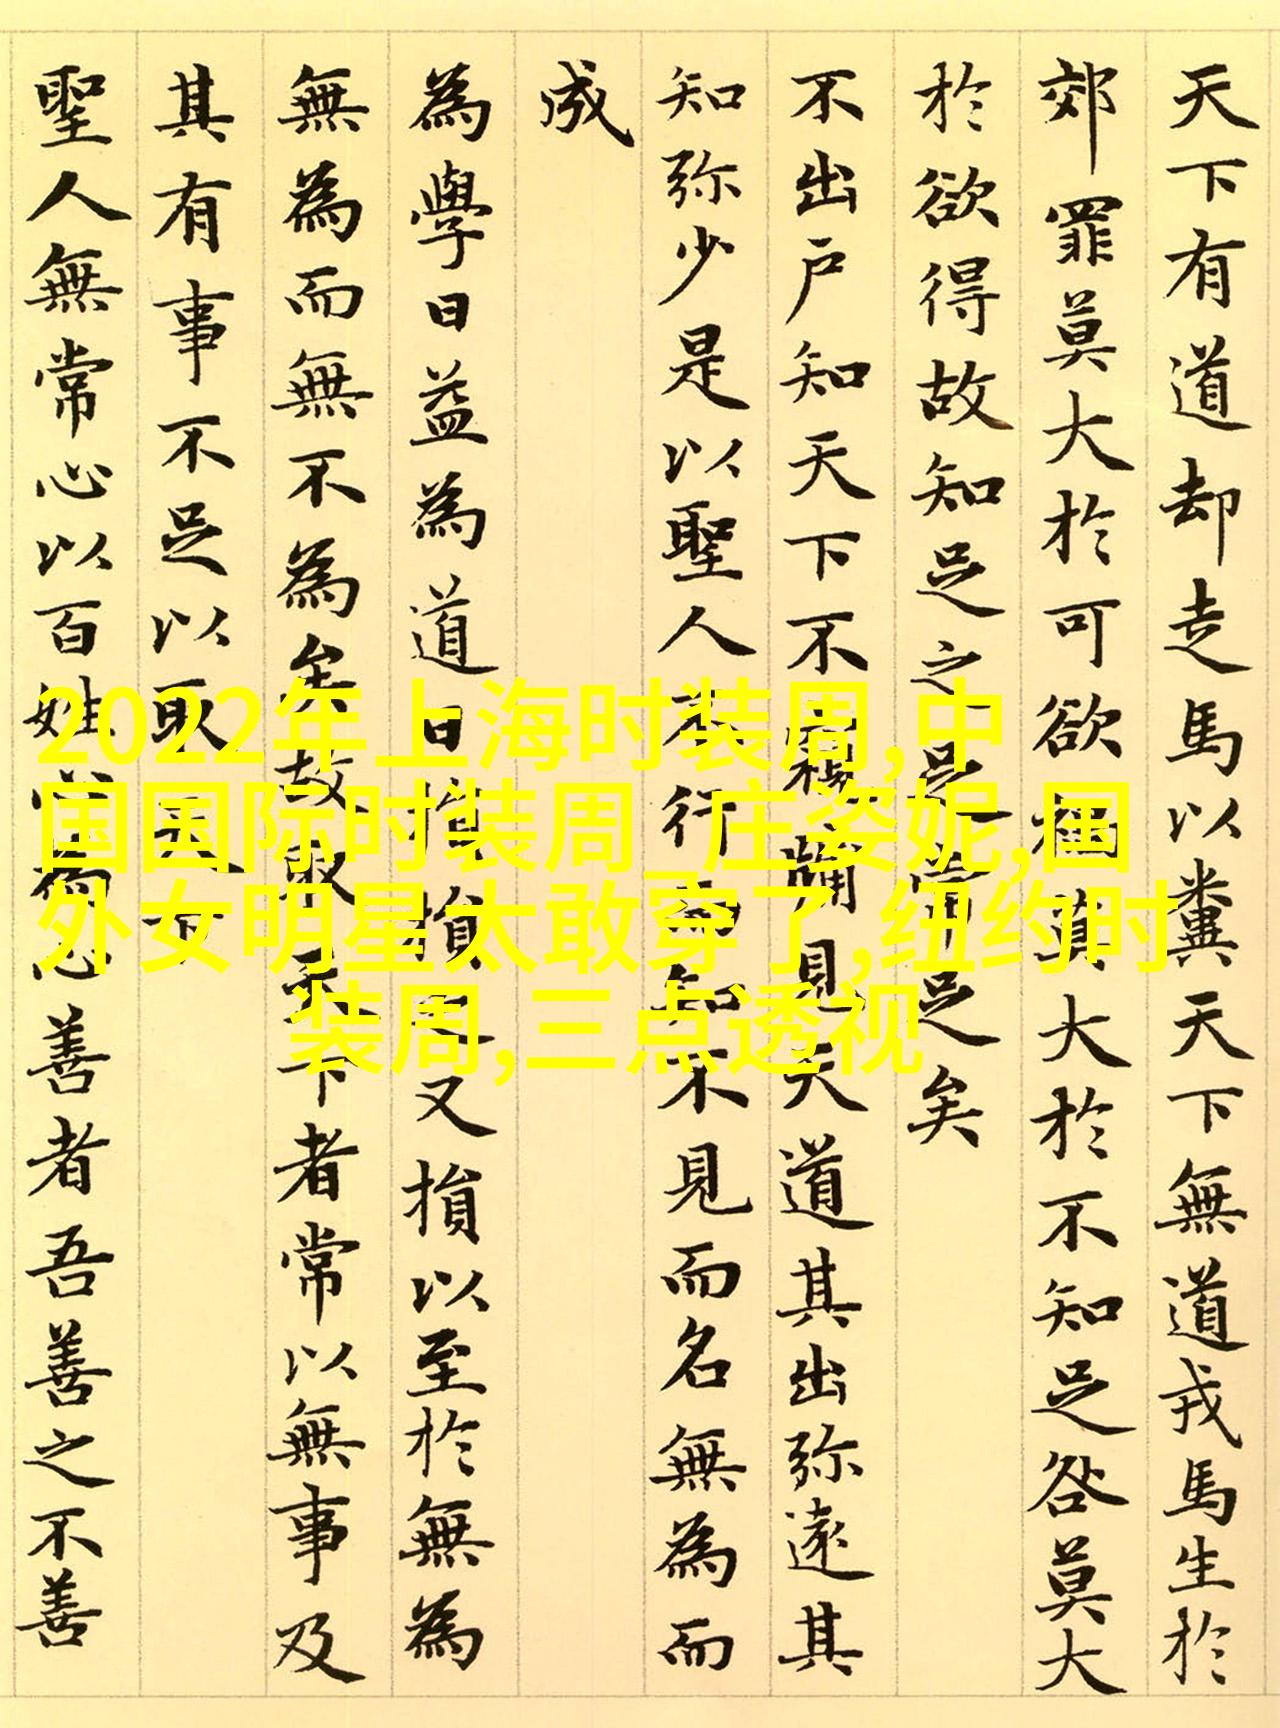 天下有道却走馬以糞天下無道戎馬生於
郊罪莫大於可欲禍莫大於不知足咎莫大
於欲得故知足之足常足矣
不出戶知天下不窺牖見天道其出弥遠其
知弥少是以聖人不行而知不見而名無為而
成
為學日益為道日損損之又損以至於無為
無為而無不為矣故取天下者常以無事及
其有事不足以取天下
聖人無常心以百姓心為心善者吾善之不善
2022年上海时装周,中
国国际时装周_庄姿妮,国
外女明星太敢穿了,纽约时
装周,三点透视